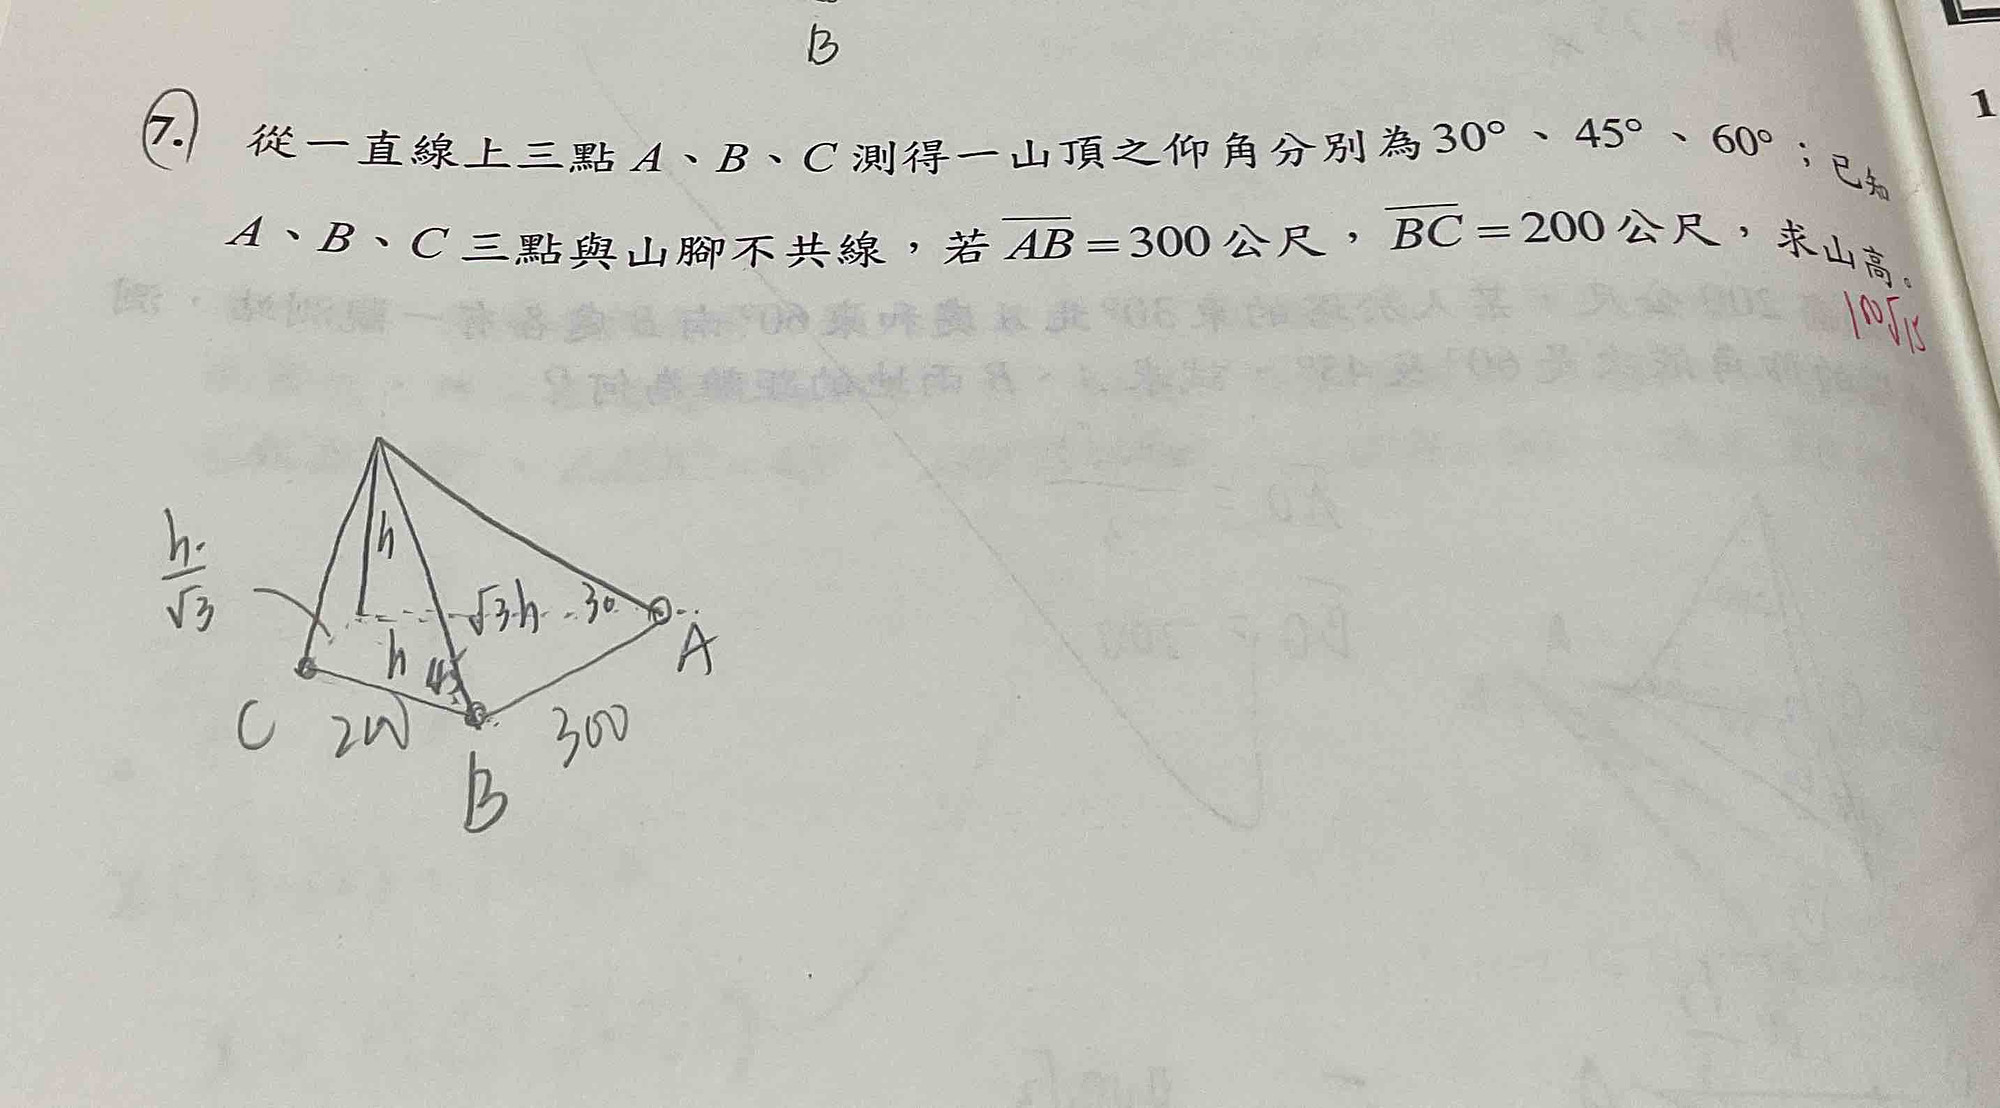 B
7. 從一直線上三點 A、B、C 測得一山頂之仰角分別為 30°、45°、60°；已知
A、B、C 三點與山腳不共線，若 AB = 300 公尺，BC = 200 公尺，求山高。
100√15
1
h
h
√3
√3h
30
A
h
45
C
200
300
B